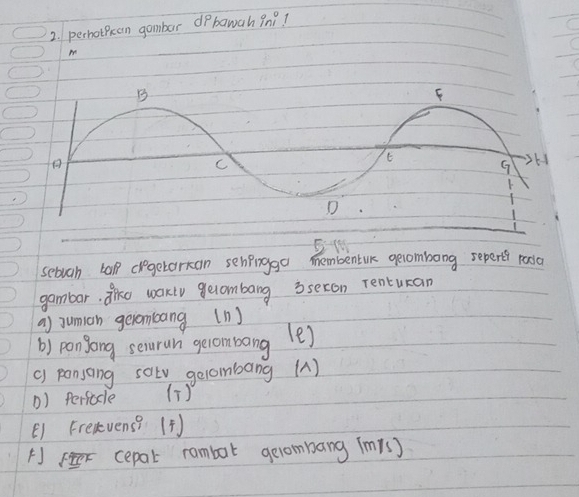 2. perhatikan gambar dibawah ini !
m
B
F
A
C
E
G
D
5 m
sebuah tali digetarkan sehingga membentuk gelombang seperti pada
gambar. jika waktu gelombang 3 sekon Tentukan
a) Jumlah gelombang (n)
b) panjang seluruh gelombang (l)
c) panjang satu gelombang (λ)
D) Periode (T)
E) Frekuensi (f)
F) cepat rambat gelombang (m/s)